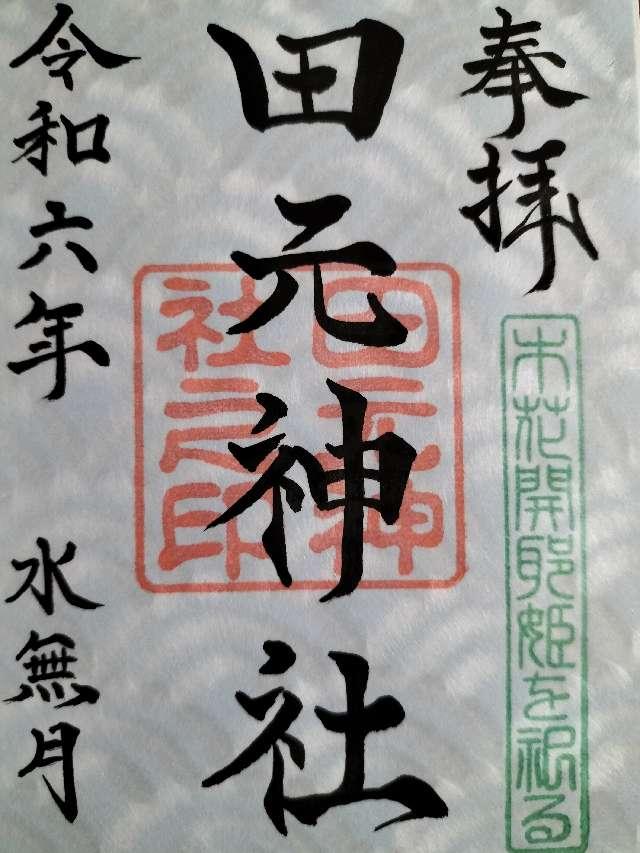 奉拝
木花開耶姫を祀る
田元神社
田元神
社之印
令和六年
水無月